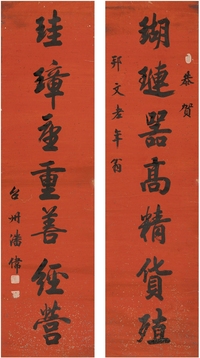 恭賀
瑚璉器高精貨殖
邦文老年翁
珪璋重重善經營
台州潘偉